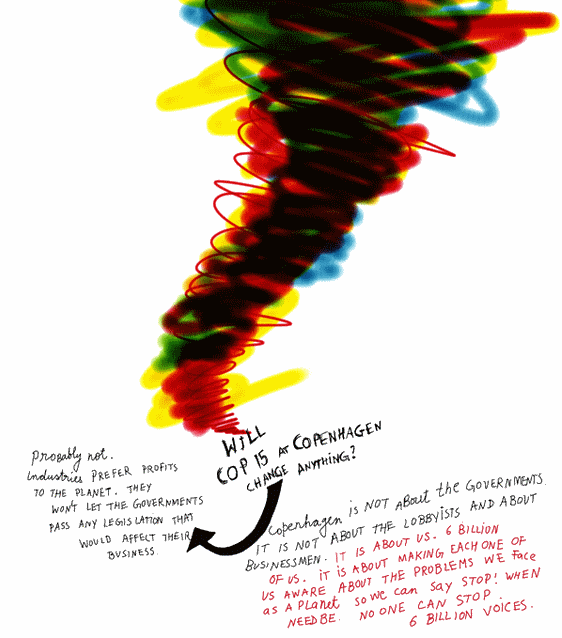 WILL
COP 15 AT COPENHAGEN
CHANGE ANYTHING?
Probably not.
Industries PREFER PROFITS
TO THE PLANET. THEY
WON'T LET THE GOVERNMENTS
PASS ANY LEGISLATION THAT
WOULD AFFECT THEIR
BUSINESS.
Copenhagen is NOT ABOUT the GOVERNMENTS.
IT IS NOT ABOUT THE LOBBYISTS AND ABOUT
BUSINESSMEN. IT IS ABOUT US. 6 BILLION
OF US. IT IS ABOUT MAKING EACH ONE OF
US AWARE ABOUT THE PROBLEMS WE FACE
as A PLANET SO WE CAN SAY STOP! WHEN
NEEDBE. NO ONE CAN STOP.
6 BILLION VOICES.